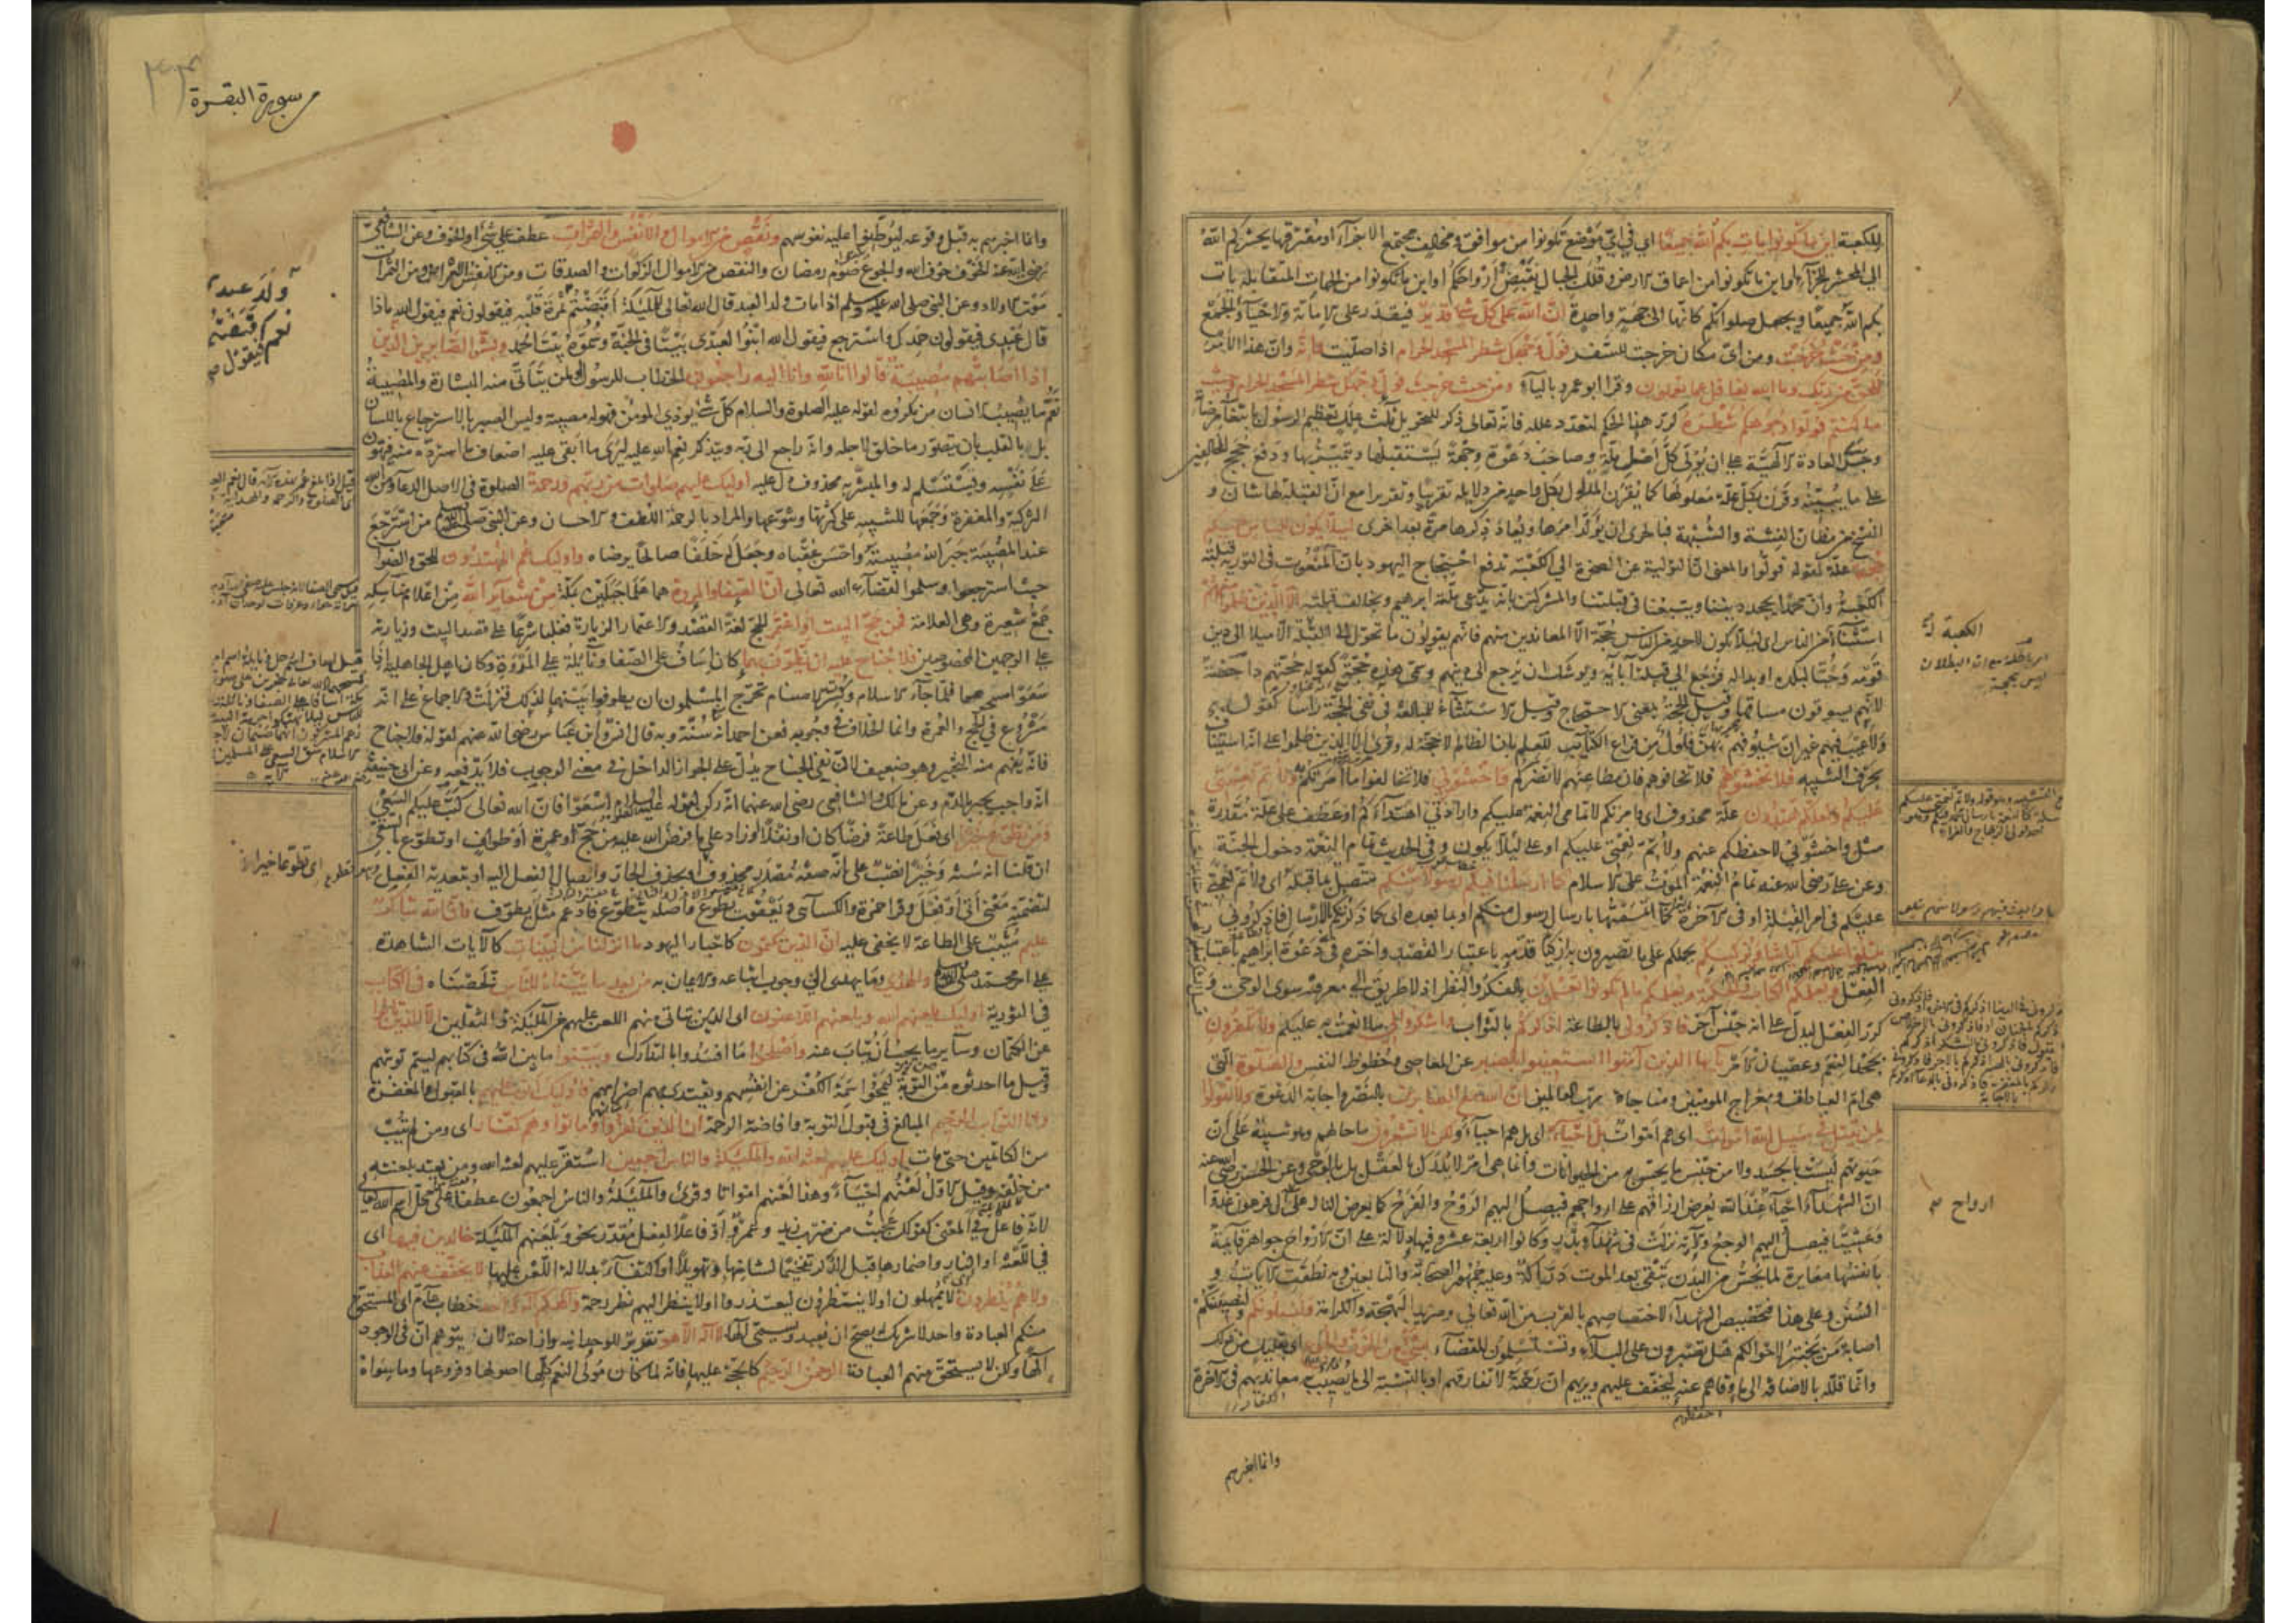 للكعبة اين ما تكونوا يات بكم الله جميعا اي في اي موضع تكونوا من موافق ومخالف مجتمع الاجزاء او مفترقها يحشركم الله
الى المحشر للجزاء او اين ما تكونوا من اعماق الارض وقلل الجبال يقبض ارواحكم او اين ما تكونوا من الجهات المتقابلة يات
بكم الله جميعا ويجعل صلواتكم كانها الى جهة واحدة ان الله على كل شئ قدير فيقدر على الاماتة والاحياء والجمع
ومن حيث خرجت ومن اي مكان خرجت للسفر فول وجهك شطر المسجد الحرام اذا صليت وانه وان هذا الامر
للحق من ربك وما الله بغافل عما تعملون وقرا ابو عمرو بالياء ومن حيث خرجت فول وجهك شطر المسجد الحرام وحيث
ما كنتم فولوا وجوهكم شطره كرر هذا الحكم لتعدد علله فانه تعالى ذكر للتحويل ثلث علل تعظيم الرسول بابتغاء مرضاته
وجرى العادة الالهية على ان يولي كل اهل ملة وصاحب دعوة وجهة يستقبلها ويتميز بها ودفع حجج المخالفين
على ما يبينه وقرن بكل علة معلولها كما يقرن المدلول بكل واحد من دلايله تقريبا وتقريرا مع ان القبلة لها شان و
النسخ من مظان الفتنة والشبهة فبالحرى ان يؤكد امرها ويعاد ذكرها مرة بعد اخرى لئلا يكون للناس عليكم
حجة علة لقوله فولوا والمعنى ان التولية عن الصخرة الى الكعبة تدفع احتجاج اليهود بان المنعوت في التورية قبلته
الكعبة وان محمدا يجحد ديننا ويتبعنا في قبلتنا والمشركين بانه يدعي ملة ابراهيم ويخالف قبلته الا الذين ظلموا منهم
استثناء من الناس اي لئلا يكون لاحد من الناس حجة الا المعاندين منهم فانهم يقولون ما تحول الى الكعبة الا ميلا الى دين
قومه وحبا لبلده او بدا له فرجع الى قبلة آبائه ويوشك ان يرجع الى دينهم وسمى هذه حجة كقوله حجتهم داحضة
لانهم يسوقون مساقها وقيل الحجة بمعنى الاحتجاج وقيل الاستثناء للمبالغة في نفي الحجة راسا كقوله
ولا عيب فيهم غير ان سيوفهم بهن فلول من قراع الكتائب للعلم بان الظالم لا حجة له وقرئ الا الذين ظلموا على انه استيناف
بحرف التنبيه فلا تخشوهم فلا تخافوهم فان مطاعنهم لا تضركم واخشوني فلا تخالفوا ما امرتكم به ولاتم نعمتي
عليكم ولعلكم تهتدون علة محذوف اي وامرتكم لاتمامي النعمة عليكم وارادتي اهتداءكم او عطف على علة مقدرة
مثل واخشوني لاحفظكم عنهم ولاتم نعمتي عليكم او على لئلا يكون وفي الحديث تمام النعمة دخول الجنة
وعن علي رضي الله عنه تمام النعمة الموت على الاسلام كما ارسلنا فيكم رسولا منكم متصل بما قبله اي ولاتم نعمتي
عليكم في امر القبلة او في الآخرة كما اتممتها بارسال رسول منكم او بما بعده اي كما ذكرتكم بالارسال فاذكروني
يتلوا عليكم آياتنا ويزكيكم يحملكم على ما تصيرون به ازكيا قدمه باعتبار القصد واخره في دعوة ابراهيم باعتبار
الفعل ويعلمكم الكتاب والحكمة ويعلمكم ما لم تكونوا تعلمون بالفكر والنظر اذ لا طريق الى معرفته سوى الوحي و
كرر الفعل ليدل على انه جنس آخر فاذكروني بالطاعة اذكركم بالثواب واشكروا لي ما انعمت به عليكم ولا تكفرون
بجحد النعم وعصيان الامر يا ايها الذين آمنوا استعينوا بالصبر عن المعاصي وحظوظ النفس والصلوة التي
هي ام العبادات ومعراج المؤمنين ومناجاة رب العالمين ان الله مع الصابرين بالنصر واجابة الدعوة ولا تقولوا
لمن يقتل في سبيل الله اموات اي هم اموات بل احياء اي بل هم احياء ولكن لا تشعرون ما حالهم وهو تنبيه على ان
حيوتهم ليست بالجسد ولا من جنس ما يحس به من الحيوانات وانما هي امر لا يدرك بالعقل بل بالوحي وعن الحسن رضي الله عنه
ان الشهداء احياء عند الله يعرض ارزاقهم على ارواحهم فيصل اليهم الروح والفرح كما يعرض النار على آل فرعون غدوا
وعشيا فيصل اليهم الوجع والآية نزلت في شهداء بدر وكانوا اربعة عشر وفيها دلالة على ان الارواح جواهر قايمة
بانفسها مغايرة لما يحس من البدن تبقى بعد الموت دراكة وعليه جمهور الصحابة والتابعين وبه نطقت الآيات و
السنن وعلى هذا فتخصيص الشهداء لاختصاصهم بالقرب من الله تعالى ومزيد البهجة والكرامة ولنبلونكم ولنصيبنكم
اصابة من يختبر لاحوالكم هل تصبرون على البلاء وتستسلمون للقضاء بشئ من الخوف والجوع اي بقليل من ذلك
وانما قلله بالاضافة الى ما وقاهم عنه ليخفف عليهم ويريهم ان رحمته لا تفارقهم او بالنسبة الى ما يصيب معانديهم في الآخرة
وانما اخبرهم
الكعبة
ارواح
سورة البقرة
وانما اخبرهم به قبل وقوعه ليوطنوا عليه نفوسهم ونقص من الاموال والانفس والثمرات عطف على شئ او الخوف وعن الشافعي
رضي الله عنه الخوف خوف الله والجوع صوم رمضان والنقص من الاموال الزكوات والصدقات ومن الانفس الامراض ومن الثمرات
موت الاولاد وعن النبي صلى الله عليه وسلم اذا مات ولد العبد قال الله تعالى للملئكة اقبضتم ثمرة قلبه فيقولون نعم فيقول الله ماذا
قال عبدي فيقولون حمدك واسترجع فيقول الله ابنوا لعبدي بيتا في الجنة وسموه بيت الحمد وبشر الصابرين الذين
اذا اصابتهم مصيبة قالوا انا لله وانا اليه راجعون الخطاب للرسول او لمن يتاتى منه البشارة والمصيبة
تعم ما يصيب الانسان من مكروه لقوله عليه الصلوة والسلام كل شئ يؤذي المؤمن فهو له مصيبة وليس الصبر بالاسترجاع باللسان
بل بالقلب بان يتصور ما خلق لاجله وانه راجع الى ربه ويتذكر نعم الله عليه ليرى ما ابقى عليه اضعاف ما استرده منه فيهون
على نفسه ويستسلم له والمبشر به محذوف دل عليه اوليك عليهم صلوات من ربهم ورحمة الصلوة في الاصل الدعاء ومن الله
التزكية والمغفرة وجمعها للتنبيه على كثرتها وتنوعها والمراد بالرحمة اللطف والاحسان وعن النبي صلى الله عليه وسلم من استرجع
عند المصيبة جبر الله مصيبته واحسن عقباه وجعل له خلفا صالحا يرضاه واوليك هم المهتدون للحق والصواب
حيث استرجعوا وسلموا لقضاء الله تعالى ان الصفا والمروة هما علما جبلين بمكة من شعائر الله من اعلام مناسكه
جمع شعيرة وهي العلامة فمن حج البيت او اعتمر الحج لغة القصد والاعتمار الزيارة فغلبا شرعا على قصد البيت وزيارته
على الوجهين المخصوصين فلا جناح عليه ان يطوف بهما كان اساف على الصفا ونائلة على المروة وكان اهل الجاهلية اذا
سعوا مسحوهما فلما جاء الاسلام وكسرت الاصنام تحرج المسلمون ان يطوفوا بينهما لذلك فنزلت والاجماع على انه
مشروع في الحج والعمرة وانما الخلاف في وجوبه فعن احمد انه سنة وبه قال انس وابن عباس رضي الله عنهم لقوله فلا جناح
فانه يفهم منه التخيير وهو ضعيف لان نفي الجناح يدل على الجواز الداخل في معنى الوجوب فلا يدفعه وعن ابي حنيفة
انه واجب يجبر بالدم وعن مالك والشافعي رضي الله عنهما انه ركن لقوله عليه السلام اسعوا فان الله تعالى كتب عليكم السعي
ومن تطوع خيرا اي فعل طاعة فرضا كان او نفلا او زاد على ما فرض الله عليه من حج او عمرة او طواف او تطوع بالسعي
ان قلنا انه سنة وخيرا نصب على انه صفة مصدر محذوف او بحذف الجار وايصال الفعل اليه او بتعدية الفعل
لتضمنه معنى اتى او فعل وقرا حمزة والكسائي ويعقوب يطوع واصله يتطوع فادغم مثل يطوف فان الله شاكر
عليم مثيب على الطاعة لا يخفى عليه ان الذين يكتمون كاحبار اليهود ما انزلنا من البينات كالآيات الشاهدة
على امر محمد صلى الله عليه وسلم والهدى وما يهدي الى وجوب اتباعه والايمان به من بعد ما بيناه للناس لخصناه في الكتاب
في التورية اوليك يلعنهم الله ويلعنهم اللاعنون اي الذين يتاتى منهم اللعن عليهم من الملئكة والثقلين الا الذين تابوا
عن الكتمان وسائر ما يجب ان يتاب عنه واصلحوا ما افسدوا بالتدارك وبينوا ما بين الله في كتابهم ليتم توبتهم
وقيل ما احدثوه من التوبة ليمحوا سمة الكفر عن انفسهم ويقتدي بهم اضرابهم فاوليك اتوب عليهم بالقبول والمغفرة
وانا التواب الرحيم المبالغ في قبول التوبة وافاضة الرحمة ان الذين كفروا وماتوا وهم كفار اي ومن لم يتب
من الكاتمين حتى مات اوليك عليهم لعنة الله والملئكة والناس اجمعين استقر عليهم لعنة الله ومن يعتد بلعنته
من خلقه وقيل الاول لعنهم احياء وهذا لعنهم امواتا وقرئ والملئكة والناس اجمعون عطفا على محل اسم الله تعالى
لانه فاعل في المعنى كقولك عجبت من ضرب زيد وعمرو او فاعلا لفعل مقدر نحو ويلعنهم الملئكة خالدين فيها اي
في اللعنة او النار واضمارها قبل الذكر تفخيما لشانها وتهويلا او اكتفاء بدلالة اللعن عليها لا يخفف عنهم العذاب
ولا هم ينظرون لا يمهلون او لا ينتظرون ليعتذروا او لا ينظر اليهم نظر رحمة والهكم اله واحد خطاب عام اي المستحق
منكم العبادة واحد لا شريك له يصح ان يعبد ويسمى الها لا اله الا هو تقرير للوحدانية وازاحة لان يتوهم ان في الوجود
الها ولكن لا يستحق منهم العبادة الرحمن الرحيم كالحجة عليها فانه لما كان مولي النعم كلها اصولها وفروعها وما سواه
ولد عبدي
نعم فيقول
اي تطوعا خيرا